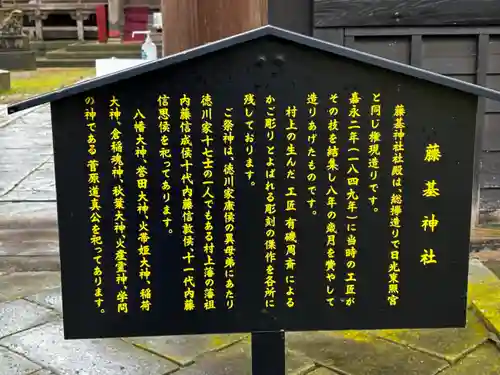 藤基神社
藤基神社社殿は、総欅造りで日光東照宮
と同じ権現造りです。
嘉永二年(一八四九年)に当時の工匠が
その技を結集し八年の歳月を費やして
造りあげたものです。
村上の生んだ 工匠 有磯周斎 による
かご彫り とよばれる彫刻の傑作を各所に
残しております。
ご祭神は、徳川家康侯の異母弟にあたり
徳川家十七士の一人でもある村上藩の藩祖
内藤信成侯十代、内藤信敦侯、十一代内藤
信思侯を祀っております。
八幡大神、誉田大神、火帝姫大神、稲荷
大神、倉稲魂神、秋葉大神、火産霊神、学問
の神である 菅原道真公を祀っております。